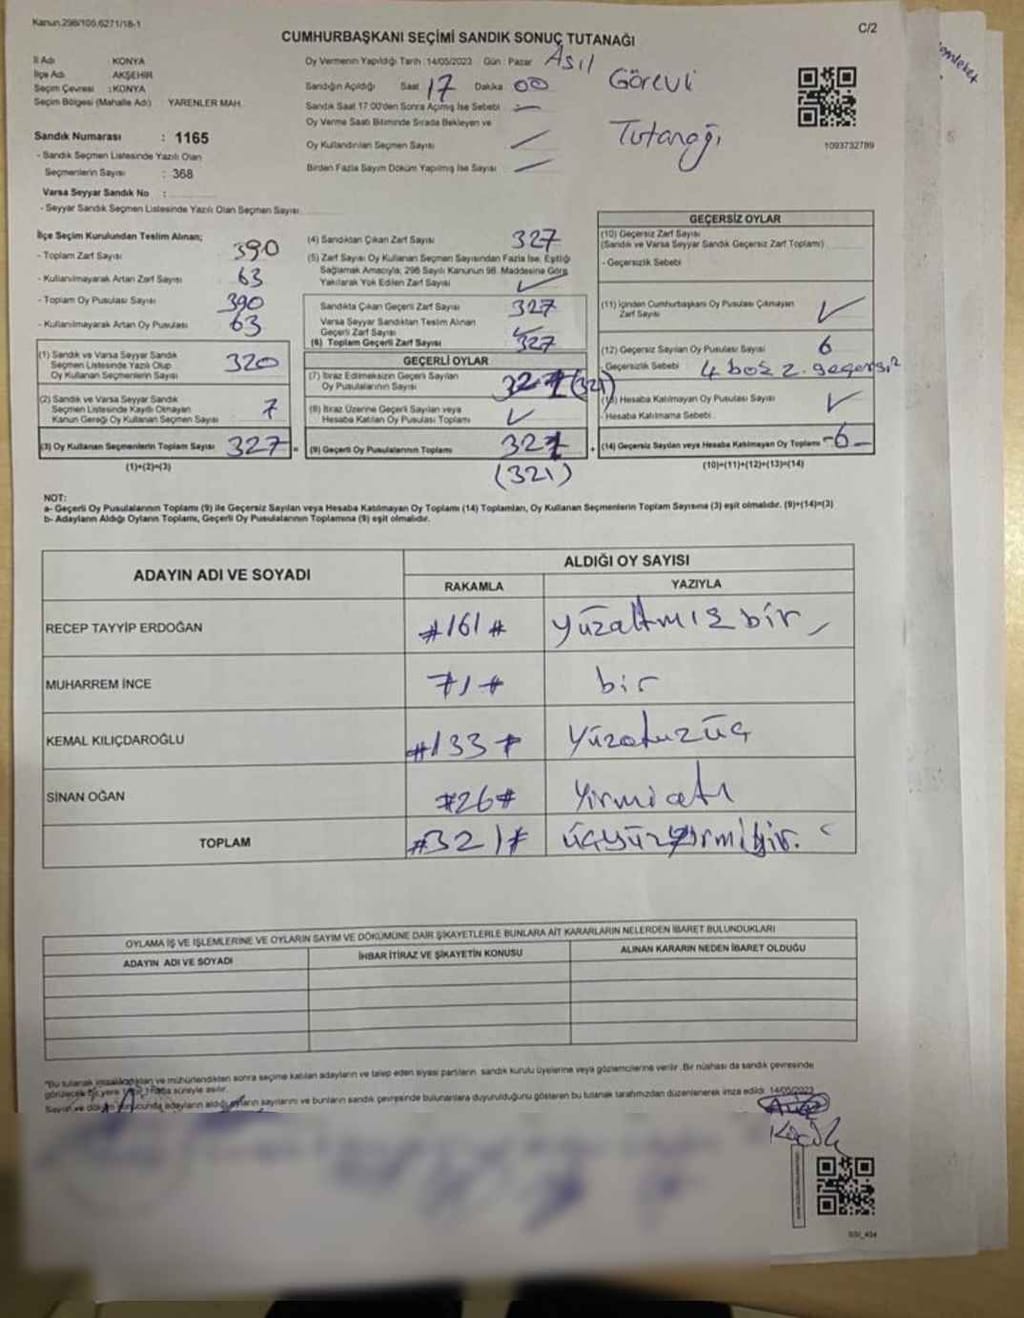 Kanun.298/105,6271/18-1
C/2
CUMHURBAŞKANI SEÇİMİ SANDIK SONUÇ TUTANAĞI
İl Adı KONYA
İlçe Adı AKŞEHİR
Seçim Çevresi : KONYA
Seçim Bölgesi (Mahalle Adı) YARENLER MAH.
Sandık Numarası : 1165
- Sandık Seçmen Listesinde Yazılı Olan
Seçmenlerin Sayısı : 368
Varsa Seyyar Sandık No :
- Seyyar Sandık Seçmen Listesinde Yazılı Olan Seçmen Sayısı
Oy Vermenin Yapıldığı Tarih : 14/05/2023 Gün : Pazar
Sandığın Açıldığı Saat 17 Dakika 00
Sandık Saat 17:00'den Sonra Açılmış İse Sebebi
Oy Verme Saati Bitiminde Sırada Bekleyen ve
Oy Kullandırılan Seçmen Sayısı
Birden Fazla Sayım Döküm Yapılmış İse Sayısı
Asıl
Görevli
Tutanağı
1093732789
İlçe Seçim Kurulundan Teslim Alınan;
- Toplam Zarf Sayısı 390
- Kullanılmayarak Artan Zarf Sayısı 63
- Toplam Oy Pusulası Sayısı 390
- Kullanılmayarak Artan Oy Pusulası 63
(1) Sandık ve Varsa Seyyar Sandık
Seçmen Listesinde Yazılı Olup
Oy Kullanan Seçmenlerin Sayısı 320
(2) Sandık ve Varsa Seyyar Sandık
Seçmen Listesinde Kayıtlı Olmayan
Kanun Gereği Oy Kullanan Seçmen Sayısı 7
(3) Oy Kullanan Seçmenlerin Toplam Sayısı 327 =
(1)+(2)=(3)
(4) Sandıktan Çıkan Zarf Sayısı 327
(5) Zarf Sayısı Oy Kullanan Seçmen Sayısından Fazla İse, Eşitliği
Sağlamak Amacıyla; 298 Sayılı Kanunun 98. Maddesine Göre
Yakılarak Yok Edilen Zarf Sayısı
Sandıkta Çıkan Geçerli Zarf Sayısı 327
Varsa Seyyar Sandıktan Teslim Alınan
Geçerli Zarf Sayısı
(6) Toplam Geçerli Zarf Sayısı 327
GEÇERLİ OYLAR
(7) İtiraz Edilmeksizin Geçerli Sayılan
Oy Pusulalarının Sayısı 327 (321)
(8) İtiraz Üzerine Geçerli Sayılan veya
Hesaba Katılan Oy Pusulası Toplamı
(9) Geçerli Oy Pusulalarının Toplamı 321 +
(321)
GEÇERSİZ OYLAR
(10) Geçersiz Zarf Sayısı
(Sandık ve Varsa Seyyar Sandık Geçersiz Zarf Toplamı)
- Geçersizlik Sebebi
(11) İçinden Cumhurbaşkanı Oy Pusulası Çıkmayan
Zarf Sayısı
(12) Geçersiz Sayılan Oy Pusulası Sayısı 6
Geçersizlik Sebebi 4 boş 2. geçersiz
(13) Hesaba Katılmayan Oy Pusulası Sayısı
- Hesaba Katılmama Sebebi
(14) Geçersiz Sayılan veya Hesaba Katılmayan Oy Toplamı -6-
(10)+(11)+(12)+(13)=(14)
NOT:
a- Geçerli Oy Pusulalarının Toplamı (9) ile Geçersiz Sayılan veya Hesaba Katılmayan Oy Toplamı (14) Toplamları, Oy Kullanan Seçmenlerin Toplam Sayısına (3) eşit olmalıdır. (9)+(14)=(3)
b- Adayların Aldığı Oyların Toplamı, Geçerli Oy Pusulalarının Toplamına (9) eşit olmalıdır.
ADAYIN ADI VE SOYADI
ALDIĞI OY SAYISI
RAKAMLA YAZIYLA
RECEP TAYYİP ERDOĞAN #161# Yüzaltmışbir
MUHARREM İNCE #1# bir
KEMAL KILIÇDAROĞLU #133# Yüzotuzüç
SİNAN OĞAN #26# Yirmialtı
TOPLAM #321# üçyüzyirmibir.
OYLAMA İŞ VE İŞLEMLERİNE VE OYLARIN SAYIM VE DÖKÜMÜNE DAİR ŞİKAYETLERLE BUNLARA AİT KARARLARIN NELERDEN İBARET BULUNDUKLARI
ADAYIN ADI VE SOYADI İHBAR İTİRAZ VE ŞİKAYETİN KONUSU ALINAN KARARIN NEDEN İBARET OLDUĞU
*Bu tutanak imzalandıktan ve mühürlendikten sonra seçime katılan adayların ve talep eden siyasi partilerin sandık kurulu üyelerine veya gözlemcilerine verilir. Bir nüshası da sandık çevresinde
görülecek bir yere süreyle asılır.
Sayım ve döküm sonucunda adayların aldığı oyların sayılarını ve bunların sandık çevresinde bulunanlara duyurulduğunu gösteren bu tutanak tarafımızdan düzenlenerek imza edildi. 14/05/2023